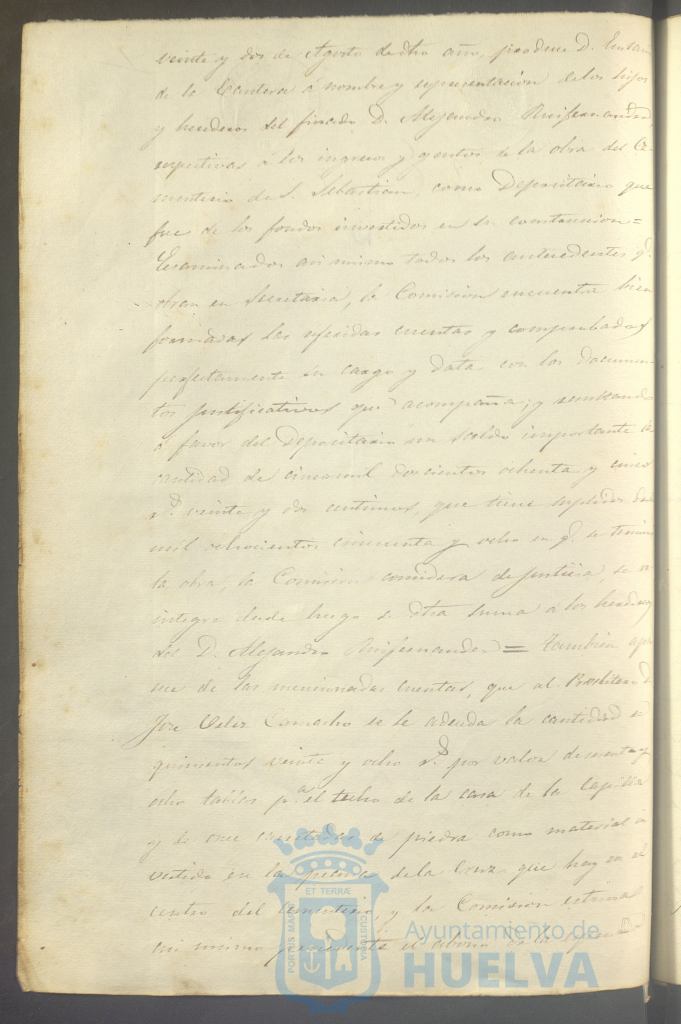 veinte y dos de Agosto de dho año, produce D.
de la Cantera á nombre y representacion de los hijos
y herederos del finado D. Alejandro Ruifernandez,
respectivas á los ingresos y gastos de la obra del Ce-
menterio de S. Sebastian, como Depositario que
fue de los fondos invertidos en su construccion=
Ecsaminados asi mismo todos los antecedentes q.
obran en Secretaria, la Comision encuentra bien
formadas las referidas cuentas y comprobadas
perfectamente su cargo y data con los documen-
tos justificativos que acompaña; y resultando
á favor del Depositario un saldo importante la
cantidad de cinco mil doscientos ochenta y cinco
r.s veinte y dos centimos, que tiene suplidos
mil ochocientos cincuenta y ocho en q. se terminó
la obra, la Comision considera de justicia, se re
integre desde luego de dha suma a los herederos
del D. Alejandro Ruifernandez = Tambien apa
rece de las mencionadas cuentas, que al Presbitero D.
Jose Velez Camacho se le adeuda la cantidad de
quinientos veinte y ocho r.s por valor de
ocho tablas p.a el techo de la casa de la Capilla
y de once carretadas de piedra como material in
vertido en la peana de la Cruz que hay en el
centro del Cementerio, y la Comision estima
asi mismo procedente el abono de la
ET TERRÆ
PORTUS MARIS
CUSTODIA
Ayuntamiento de
HUELVA